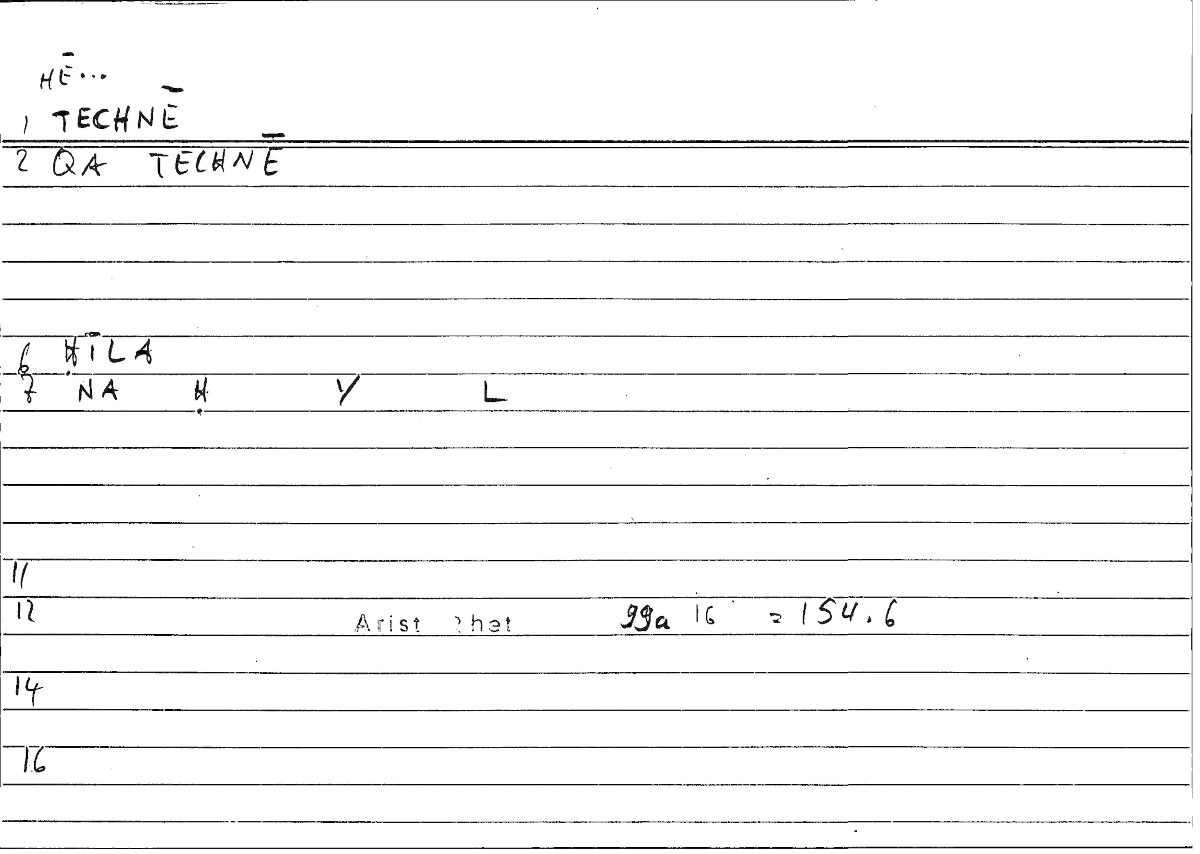 HĒ...
1 TECHNĒ
2 QA TECHNĒ
6 ḤĪLA
7 NA Ḥ Y L
11
12 Arist Rhet 99a 16 = 154.6
14
16